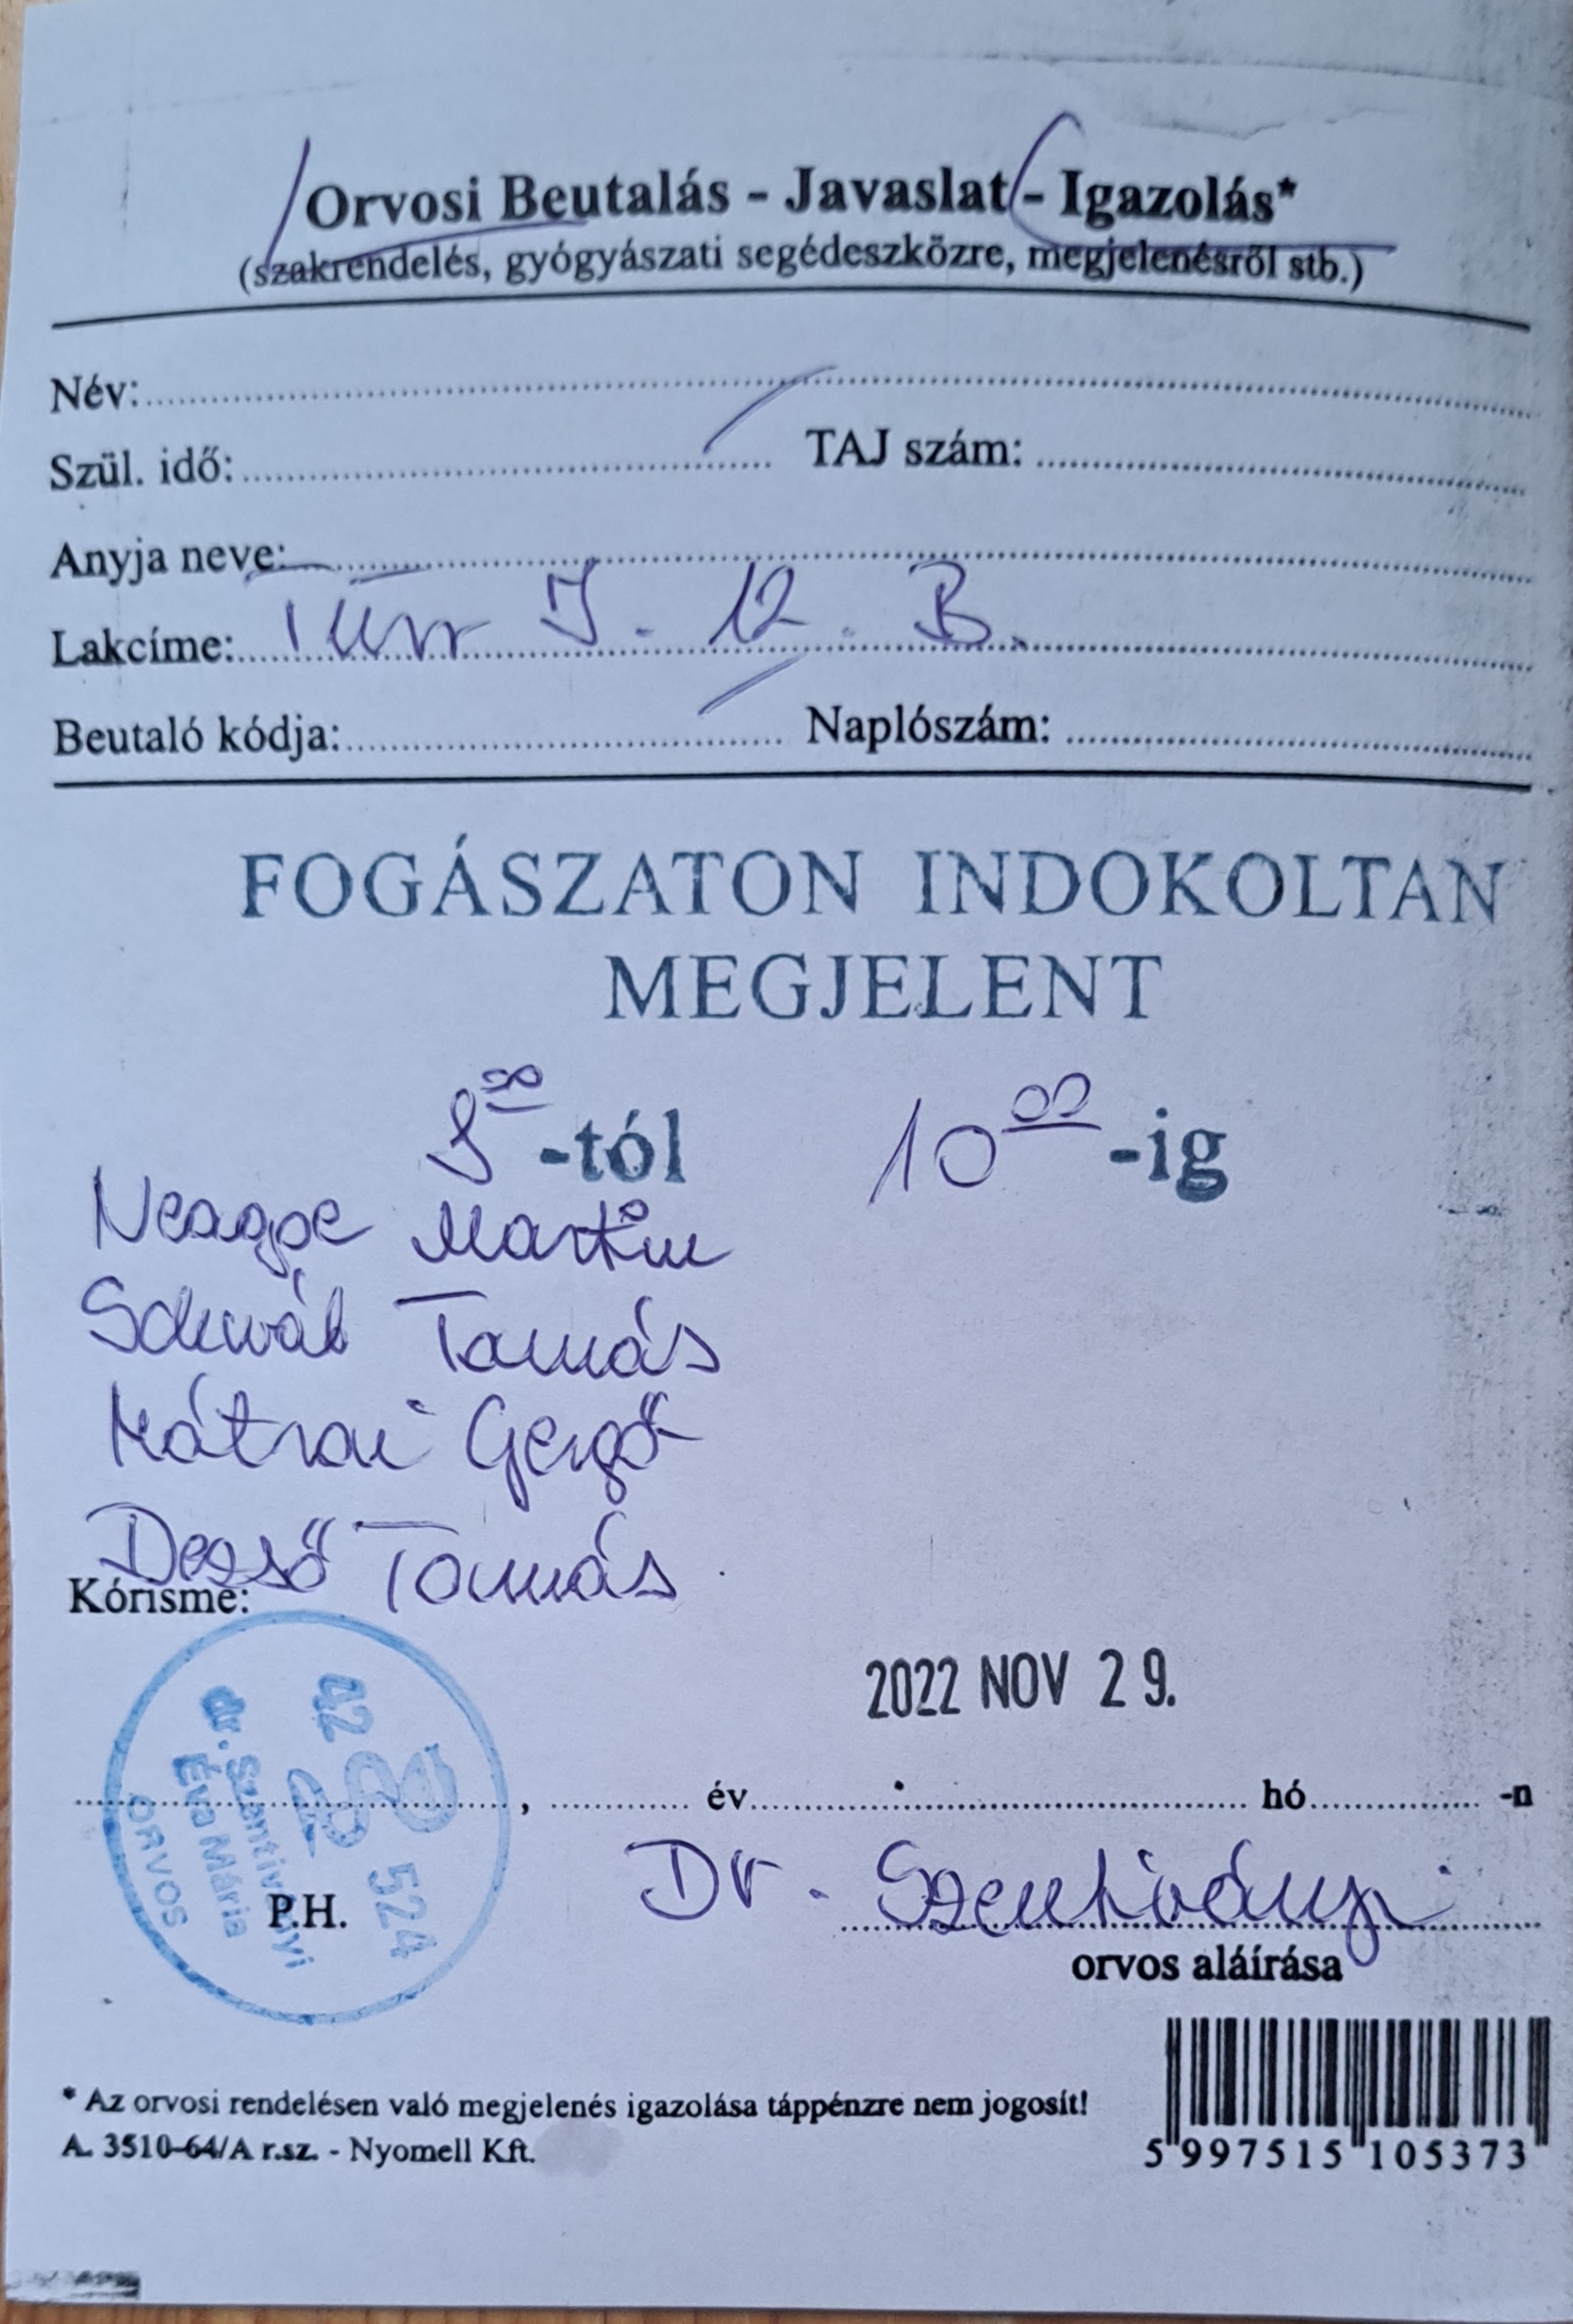 Orvosi Beutalás - Javaslat - Igazolás*
(szakrendelés, gyógyászati segédeszközre, megjelenésről stb.)
Név:
Szül. idő: TAJ szám:
Anyja neve:
Lakcíme: Türr I. 12. B.
Beutaló kódja: Naplószám:
FOGÁSZATON INDOKOLTAN
MEGJELENT
8⁰⁰-tól 10⁰⁰-ig
Neagoe Martin
Schwáb Tamás
Mátrai Gergő
Dezső Tamás
Kórisme:
2022 NOV 29.
, év hó -n
42 524
dr. Szentiványi
Éva Mária
ORVOS
P.H.
Dr. Szentiványi
orvos aláírása
* Az orvosi rendelésen való megjelenés igazolása táppénzre nem jogosít!
A. 3510-64/A r.sz. - Nyomell Kft.
5 997515 105373